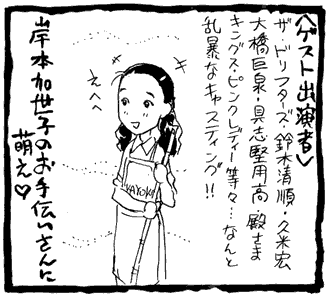 〈ゲスト出演者〉
ザ・ドリフターズ、鈴木清順・久米宏
大橋巨泉・具志堅用高 殿さま
キングス・ピンクレディー等々…なんと
乱暴なキャスティング!!
えへへ
KAYOKO
岸本加世子のお手伝いさんに
萌え♡